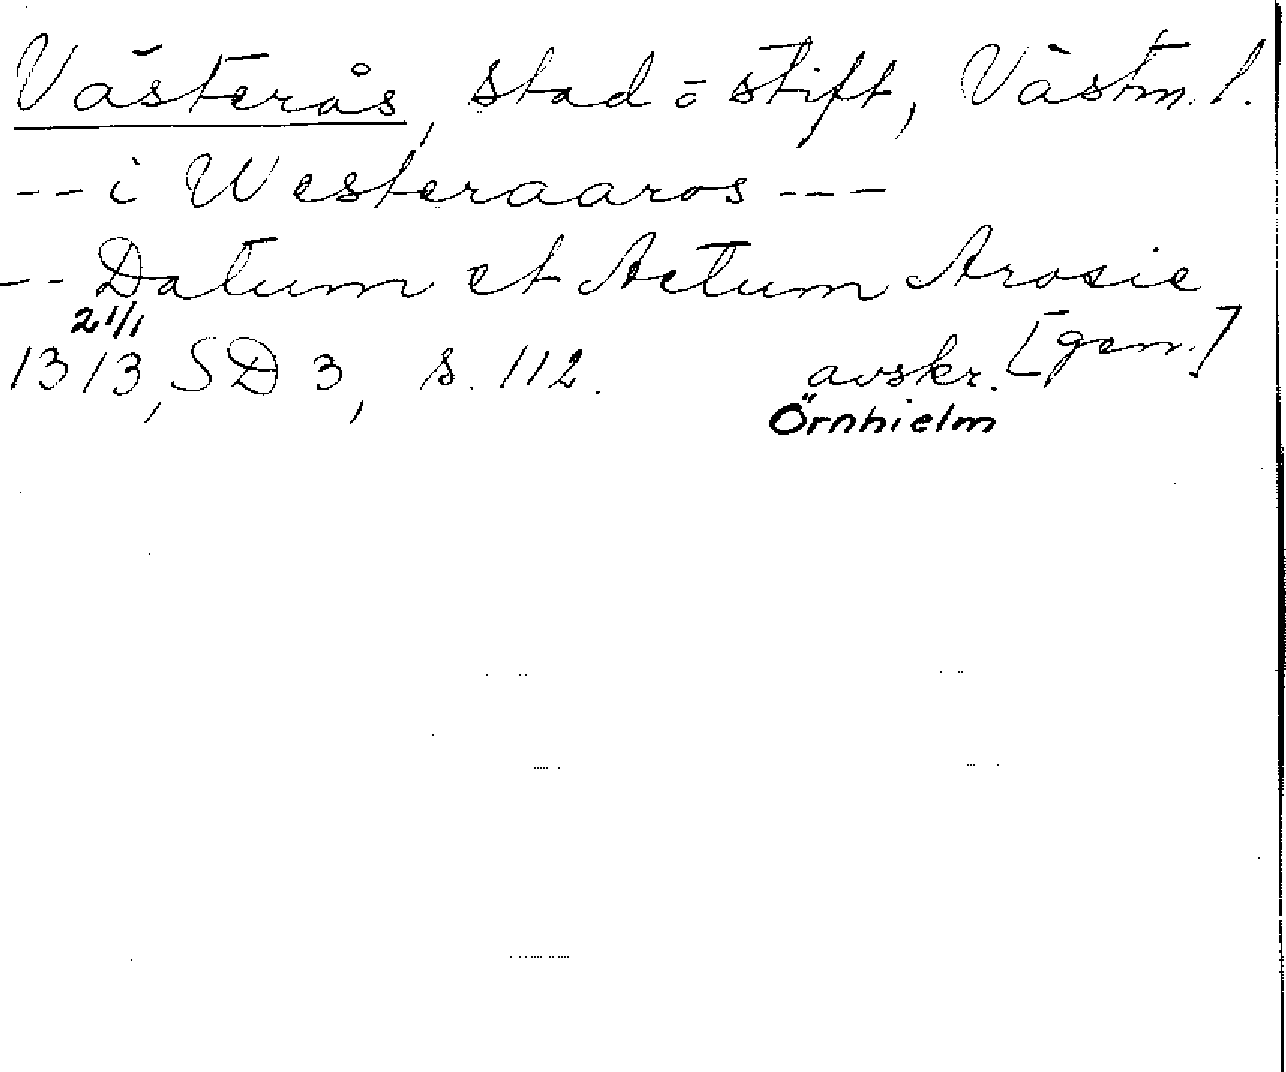 Västerås, stad o stift, Västm. l.
-- i Westeraaros ---
-- Datum et Actum Arosie
21/1
1313, SD 3, s. 112. avskr. [gen.]
Örnhielm